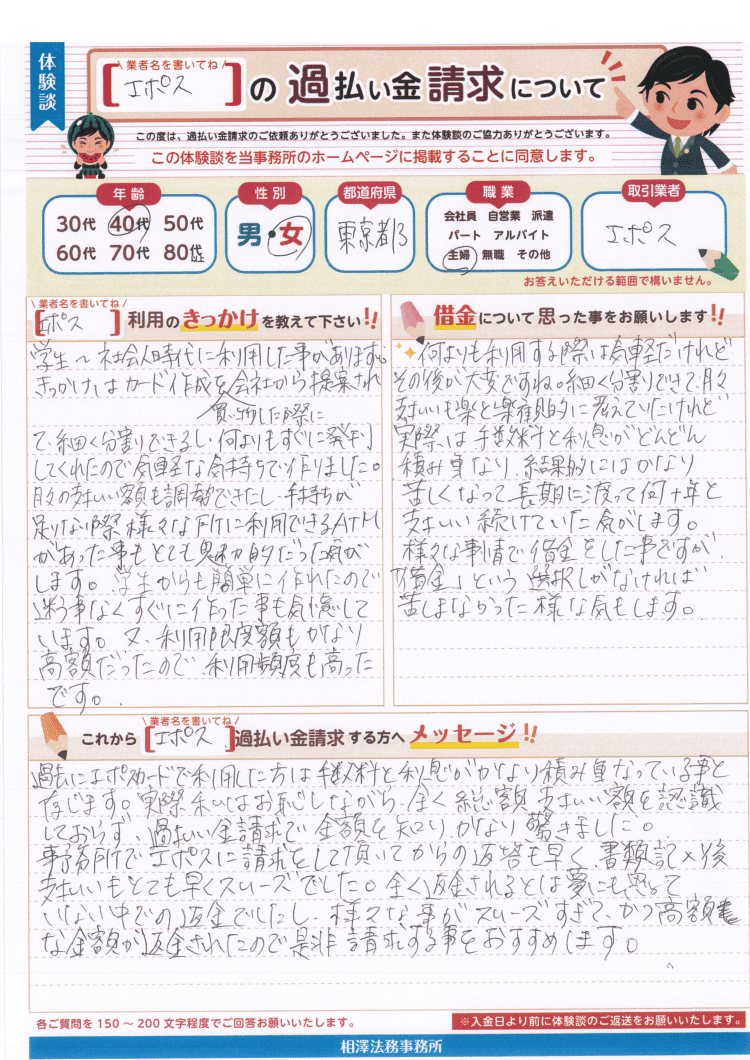 体験談
\ 業者名を書いてね /
[エポス] の 過払い金 請求について
この度は、過払い金請求のご依頼ありがとうございました。また体験談のご協力ありがとうございます。
この体験談を当事務所のホームページに掲載することに同意します。
年齢
30代 40代 50代
60代 70代 80代以上
性別
男・女
都道府県
東京都
職業
会社員 自営業 派遣
パート アルバイト
主婦 無職 その他
取引業者
エポス
お答えいただける範囲で構いません。
\ 業者名を書いてね /
[エポス] 利用のきっかけを教えて下さい!!
学生〜社会人時代に利用した事があります。
きっかけはカード作成を会社から提案され
買い物した際に
て、細く分割りできるし、何よりもすぐに発行
してくれたので気軽な気持ちで作りました。
月々の支払い額も調整できたし、手持ちが
足りない際、様々な所に利用できるATM
があった事もとても魅力的だった気が
します。学生からも簡単に作れたので
迷う事なくすぐに作った事も記憶して
います。又、利用限度額もかなり
高額だったので、利用頻度も高った
です。
借金について思った事をお願いします!!
何よりも利用する際は気軽だけれど
その後が大変ですね。細く分割りできて、月々
支払いも楽と楽観的に考えていたけれど
実際は手数料と利息がどんどん
積み重なり、結果的にはかなり
苦しくなって長期に渡って何十年と
支払い続けていた気がします。
様々な事情で借金をした事ですが、
「借金」という選択しがなければ
苦しまなかった様な気もします。
\ 業者名を書いてね /
これから [エポス] 過払い金請求する方へ メッセージ!!
過去にエポスカードで利用した方は手数料と利息がかなり積み重なっている事と
存じます。実際私はお恥しながら、全く総額支払い額を認識
しておらず、過払い金請求で金額を知り、かなり驚きました。
事務所でエポスに請求をして頂いてからの返答も早く、書類記入後
支払いもとても早くスムーズでした。全く返金されるとは夢にも思って
いない中での返金でしたし、様々な事がスムーズすぎて、かつ高額
な金額が返金されたので是非請求する事をおすすめします。
各ご質問を150〜200文字程度でご回答お願いいたします。
※入金日より前に体験談のご返送をお願いいたします。
相澤法務事務所